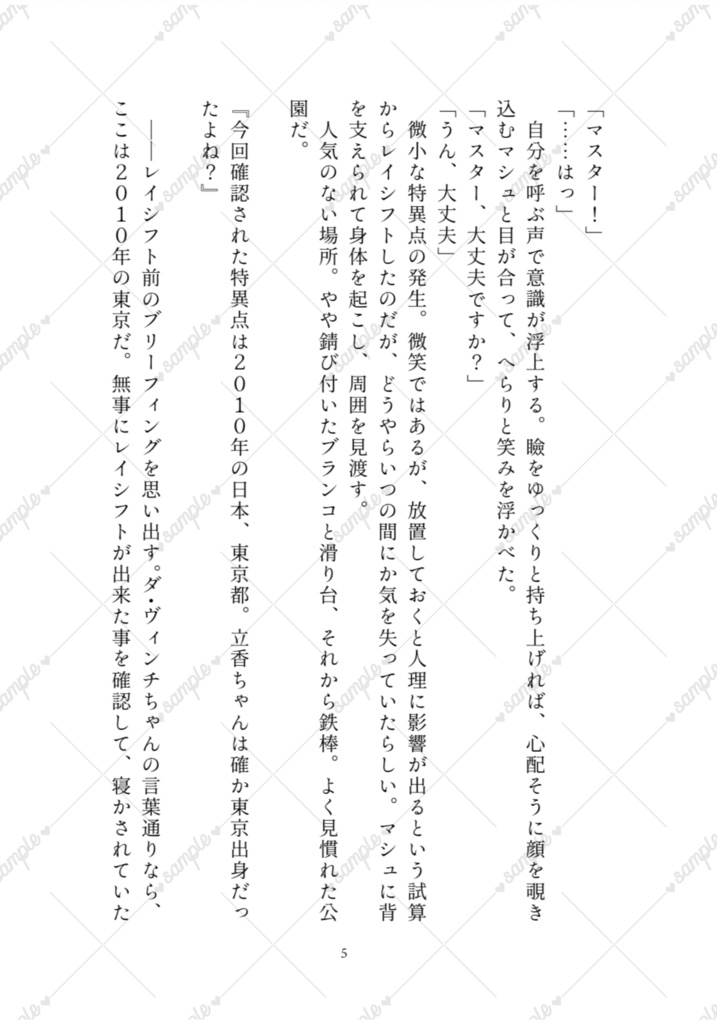 「マスター！」
「……はっ」
　自分を呼ぶ声で意識が浮上する。瞼をゆっくりと持ち上げれば、心配そうに顔を覗き
込むマシュと目が合って、へらりと笑みを浮かべた。
「マスター、大丈夫ですか？」
「うん、大丈夫」
　微小な特異点の発生。微笑ではあるが、放置しておくと人理に影響が出るという試算
からレイシフトしたのだが、どうやらいつの間にか気を失っていたらしい。マシュに背
を支えられて身体を起こし、周囲を見渡す。
　人気のない場所。やや錆び付いたブランコと滑り台、それから鉄棒。よく見慣れた公
園だ。
『今回確認された特異点は２０１０年の日本、東京都。立香ちゃんは確か東京出身だっ
たよね？』
　――レイシフト前のブリーフィングを思い出す。ダ・ヴィンチちゃんの言葉通りなら、
ここは２０１０年の東京だ。無事にレイシフトが出来た事を確認して、寝かされていた
5
sample